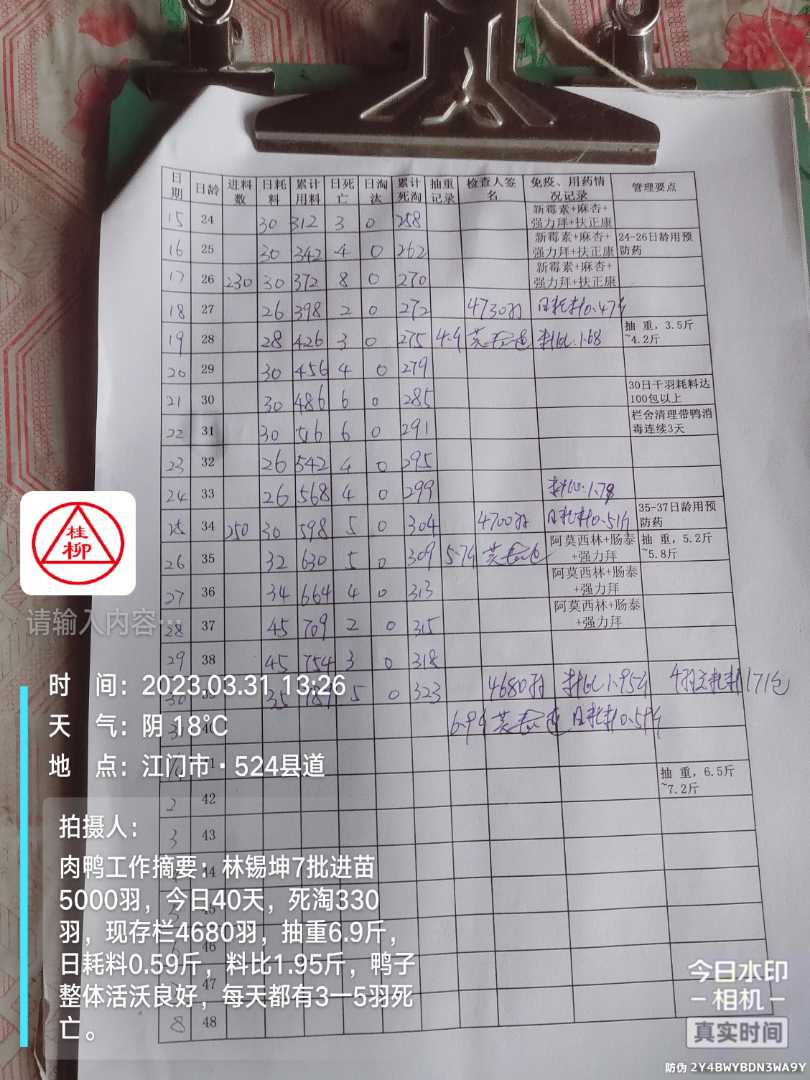 日期 日龄 进料数 日耗料 累计用料 日死亡 日淘汰 累计死淘 抽重记录 检查人签名 免疫、用药情况记录 管理要点
15 24 30 312 3 0 258 新霉素+麻杏+强力拜+扶正康
16 25 30 342 4 0 262 新霉素+麻杏+强力拜+扶正康 24-26日龄用预防药
17 26 230 30 372 8 0 270 新霉素+麻杏+强力拜+扶正康
18 27 26 398 2 0 272 4730羽 日耗料0.47斤
19 28 28 426 3 0 275 4.4 料比1.68 抽重,3.5斤~4.2斤
20 29 30 456 4 0 279
21 30 30 486 6 0 285 30日千羽耗料达100包以上
22 31 30 516 6 0 291 栏舍清理带鸭消毒连续3天
23 32 26 542 4 0 295
24 33 26 568 4 0 299 料比1.78
25 34 250 30 598 5 0 304 4700羽 日耗料0.51斤 35-37日龄用预防药
26 35 32 630 5 0 309 5.7斤 阿莫西林+肠泰+强力拜 抽重,5.2斤~5.8斤
27 36 34 664 4 0 313 阿莫西林+肠泰+强力拜
28 37 45 709 2 0 315 阿莫西林+肠泰+强力拜
29 38 45 754 3 0 318
30 35 789 5 0 323 4680羽 料比1.95斤 171包
6.9斤 日耗料0.59斤
41
2 42 抽重,6.5斤~7.2斤
3 43
44
45
46
47
8 48
桂柳
请输入内容…
时 间:2023.03.31 13:26
天 气:阴 18℃
地 点:江门市·524县道
拍摄人:
肉鸭工作摘要:林锡坤7批进苗
5000羽,今日40天,死淘330
羽,现存栏4680羽,抽重6.9斤,
日耗料0.59斤,料比1.95斤,鸭子
整体活沃良好,每天都有3一5羽死
亡。
今日水印
相机
真实时间
防伪 2Y4BWYBDN3WA9Y